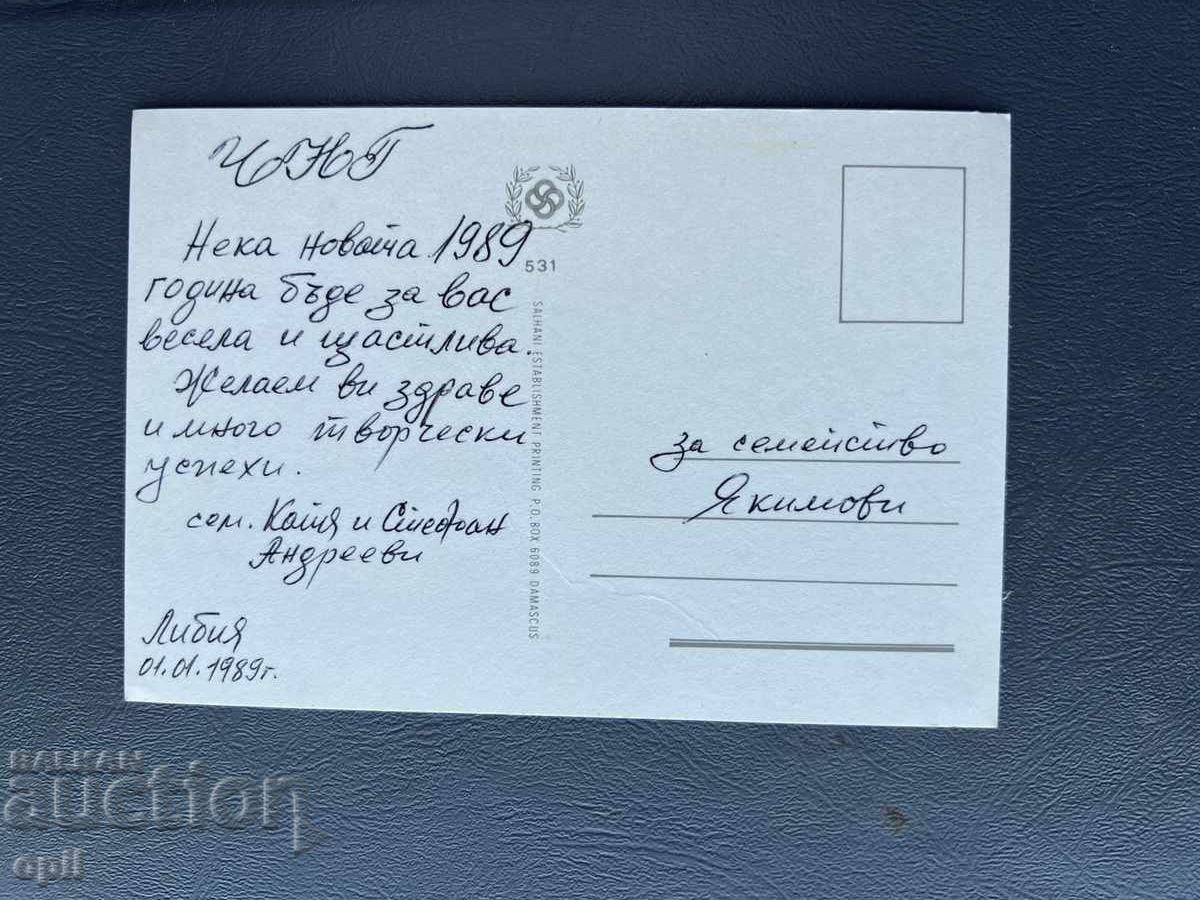 ЧНГ
Нека новата 1989
година бъде за вас
весела и щастлива.
Желаем ви здраве
и много творчески
успехи.
сем. Катя и Стефан
Андрееви
Либия
01.01.1989г.
531
SALHANI ESTABLISHMENT PRINTING P.O. BOX 6089 DAMASCUS
за семейство
Якимови
BALKAN
auction
opil